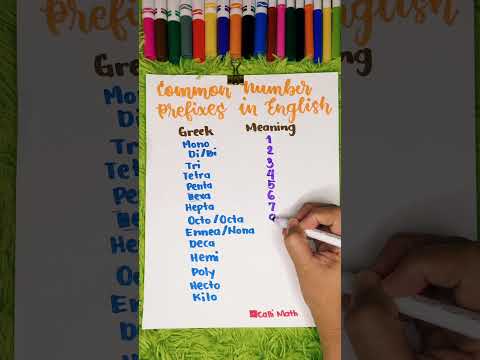 Common Number
Prefixes in English
Greek Meaning
Mono 1
Di/Bi 2
Tri 3
Tetra 4
Penta 5
Hexa 6
Hepta 7
Octo/Octa
Ennea/Nona
Deca
Hemi
Poly
Hecto
Kilo
Calli Math